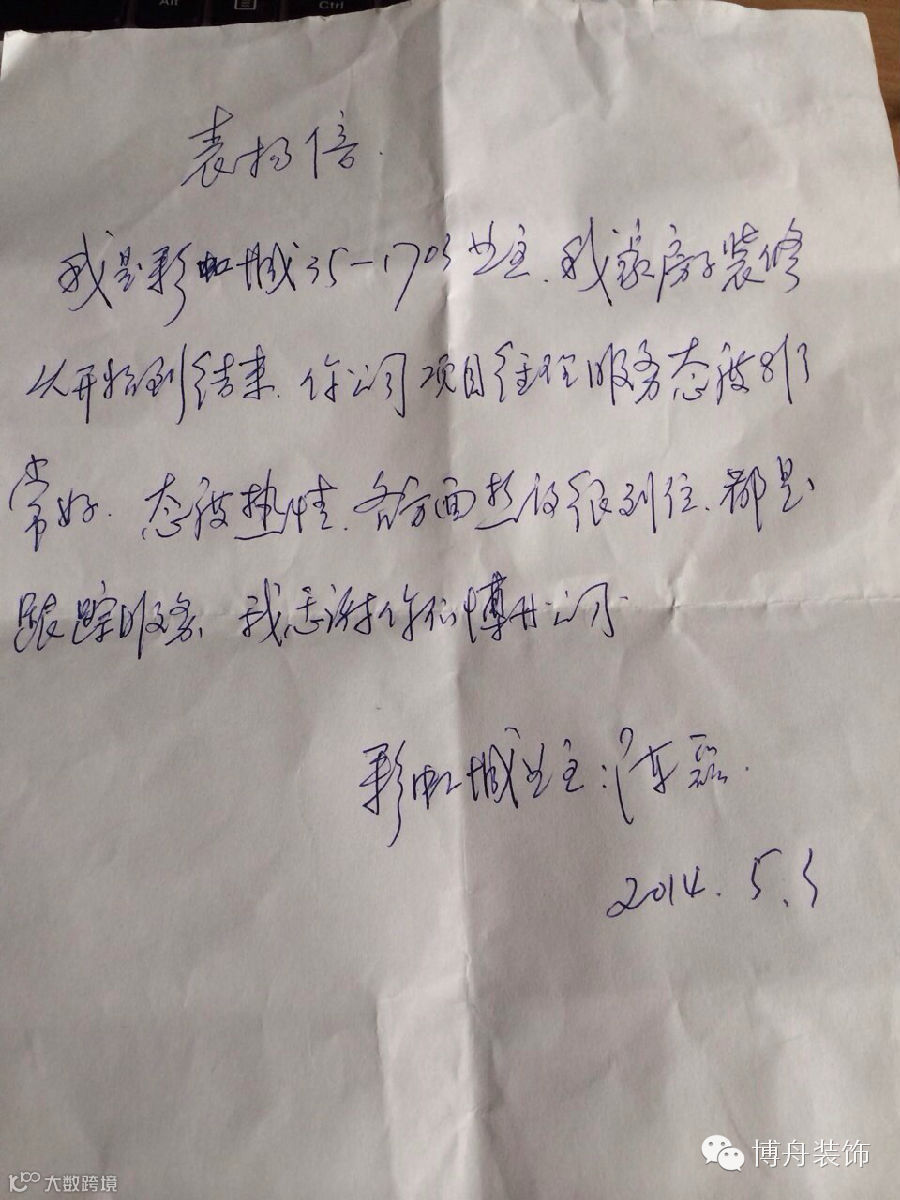 Alt
Ctrl
表扬信
我是彩虹城35-1703业主.我家房子装修
从开始到结束.你公司项目经理服务态度非
常好.态度热情.各方面都很到位.都是
跟踪服务.我感谢你们博舟公司
彩虹城业主:陈磊.
2014.5.3
博舟装饰
大数跨境